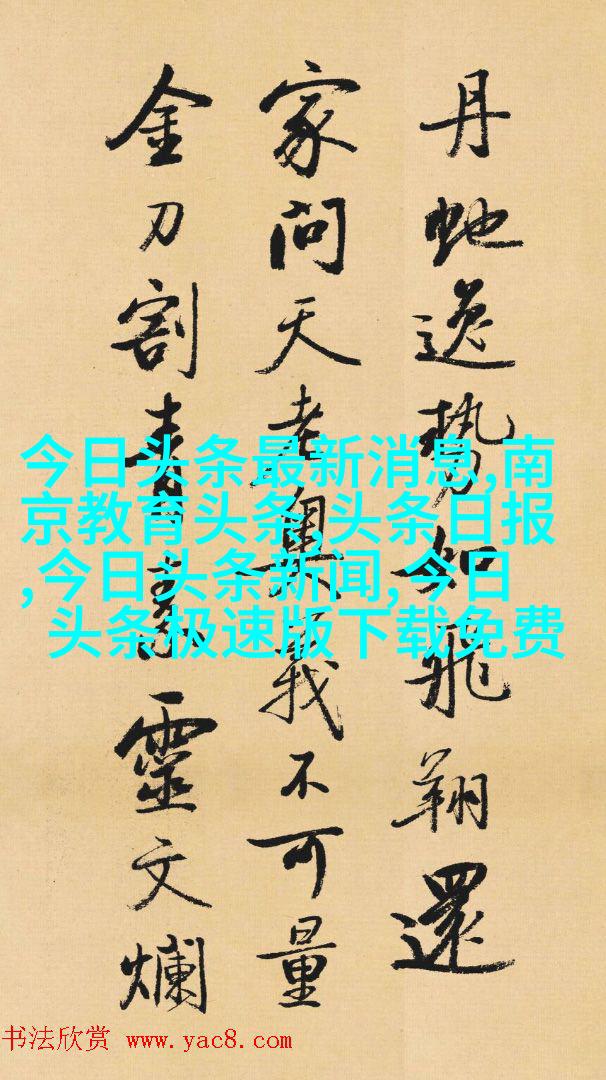 丹虵逸勢如飛翔還
家問天老奥義不可量
金刀割青素靈文爛
今日头条最新消息,南
京教育头条,头条日报
,今日头条新闻,今日
头条极速版下载免费
书法欣赏 www.yac8.com